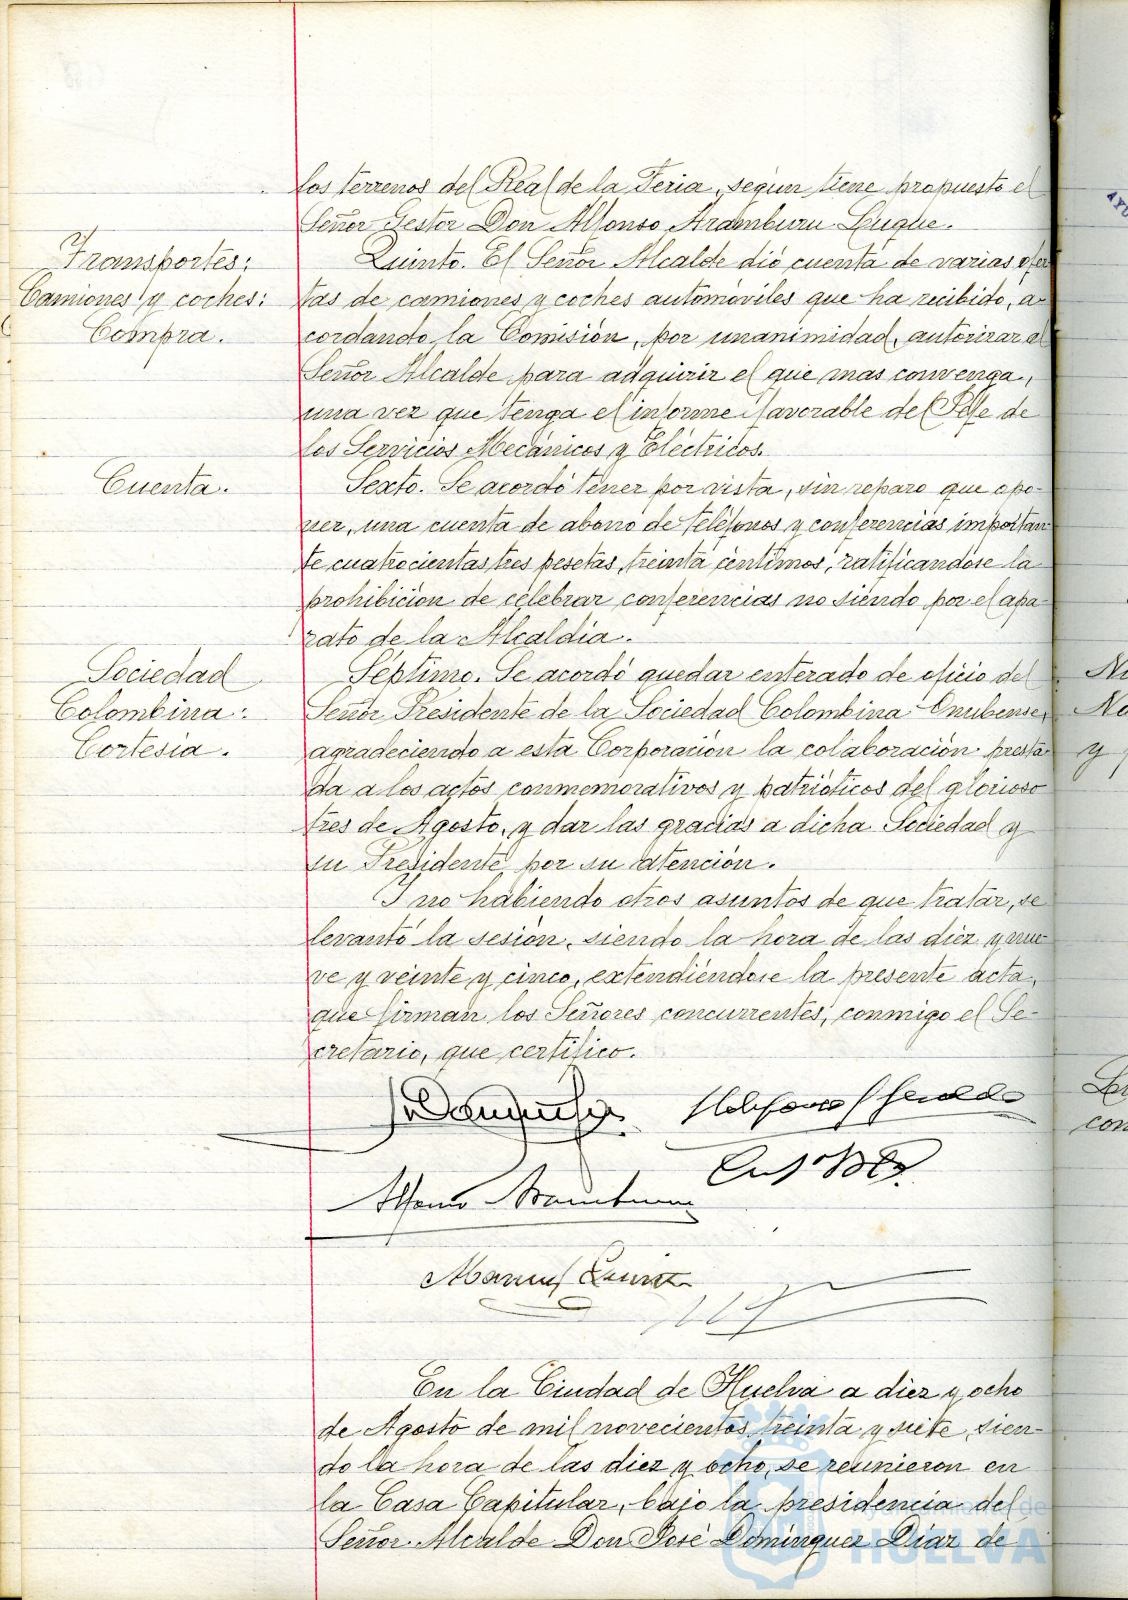 los terrenos del Real de la Feria, según tiene propuesto el
Señor Gestor Don Alfonso Aramburu Luque.
Transportes:
Camiones y coches:
Compra.
Quinto. El Señor Alcalde dió cuenta de varias ofer
tas de camiones y coches automóviles que ha recibido, a-
cordando la Comisión, por unanimidad, autorizar al
Señor Alcalde para adquirir el que mas convenga,
una vez que tenga el informe favorable del Jefe de
los Servicios Mecánicos y Eléctricos.
Cuenta.
Sexto. Se acordó tener por vista, sin reparo que opo-
ner, una cuenta de abono de teléfonos y conferencias importan
te cuatrocientas tres pesetas, treinta céntimos, ratificandose la
prohibición de celebrar conferencias no siendo por el apa-
rato de la Alcaldía.
Sociedad
Colombina:
Cortesía.
Séptimo. Se acordó quedar enterado de oficio del
Señor Presidente de la Sociedad Colombina Onubense,
agradeciendo a esta Corporación la colaboración presta-
da a los actos conmemorativos y patrióticos del glorioso
tres de Agosto, y dar las gracias a dicha Sociedad y
su Presidente por su atención.
Y no habiendo otros asuntos de que tratar, se
levantó la sesión, siendo la hora de las diez y nue-
ve y veinte y cinco, extendiéndose la presente acta,
que firman los Señores concurrentes, conmigo el Se-
cretario, que certifico.
Alfonso Aramburu
Manuel
En la Ciudad de Huelva a diez y ocho
de Agosto de mil novecientos treinta y siete, sien-
do la hora de las diez y ocho, se reunieron en
la Casa Capitular, bajo la presidencia del
Señor Alcalde Don José Domínguez Díaz de
Ayuntamiento de
HUELVA